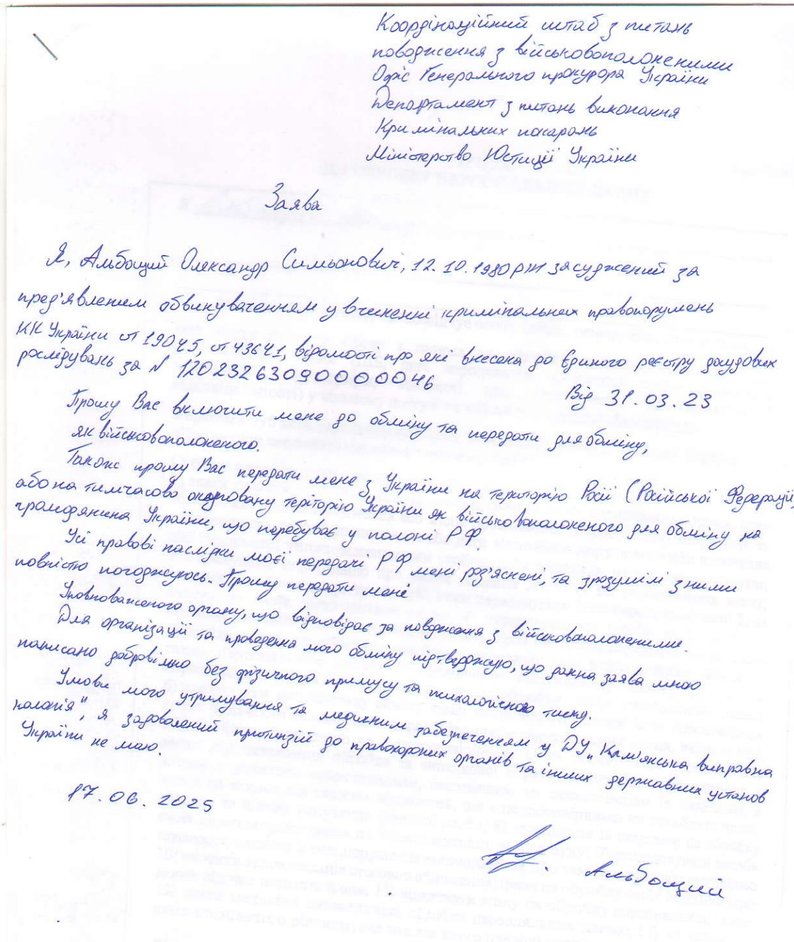 Координаційний штаб з питань
поводження з військовополоненими
Офіс Генерального прокурора України
Департамент з питань виконання
Кримінальних покарань
Міністерство Юстиції України
Заява
Я, Альбощий Олександр Симьонович, 12.10.1980 рн засуджений за
пред'явленим обвинуваченням у вчиненні кримінальних правопорушень
КК України ст 190ч5, ст 436ч1, відомості про які внесена до Єдиного реєстру досудових
розслідувань за № 12023263090000046 Від 31.03.23
Прошу Вас включити мене до обміну та передати для обміну,
як військовополоненого.
Також прошу Вас передати мене з України на територію Росії (Російської Федерації)
або на тимчасово окуповану територію України як військовополоненого для обміну на
громадянина України, що перебуває у полоні РФ.
Усі правові наслідки моєї передачі РФ мені роз'яснені, та зрозумілі з ними
повністю погоджуюсь. Прошу передати мене
Уповноваженого органу, що відповідає за поводження з військовополоненими.
Для організації та проведення мого обміну підтверджую, що данна заява мною
написано добровільно без фізичного примусу та психологічного тиску.
Умови мого утримування та медичним забезпеченням у ДУ „Кам'янська виправна
колонія", я задоволений притинзій до правоохорних органів та інших державних установ
України не маю.
17.06.2025
Альбощий